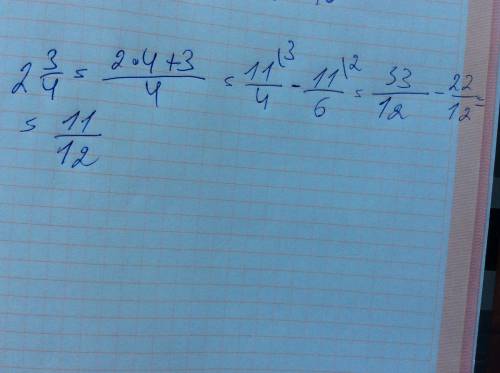 2 3/4 = (2·4+3)/4 = 11/4 \3 - 11/6 \2 = 33/12 - 22/12 =
= 11/12